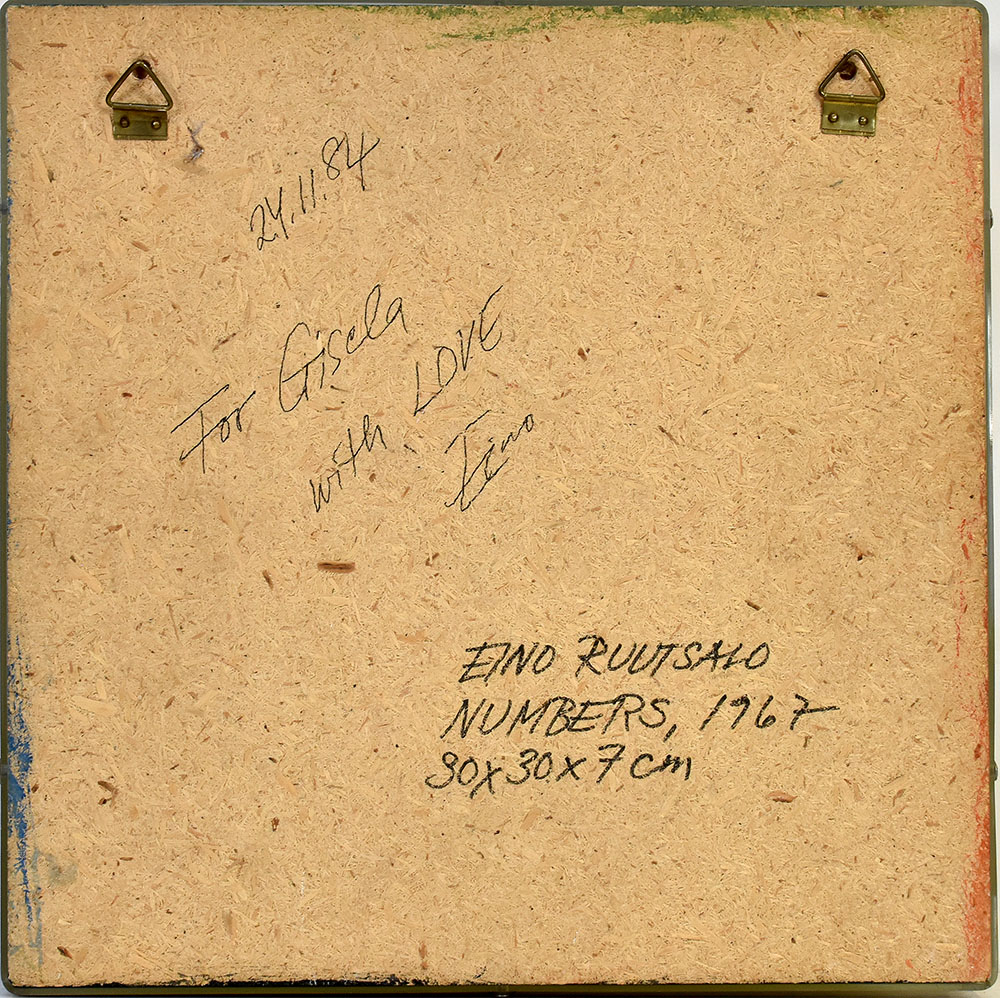 24.11.84
For Gisela
with LOVE
Eino
EINO RUUTSALO
NUMBERS, 1967
30x30x7 cm